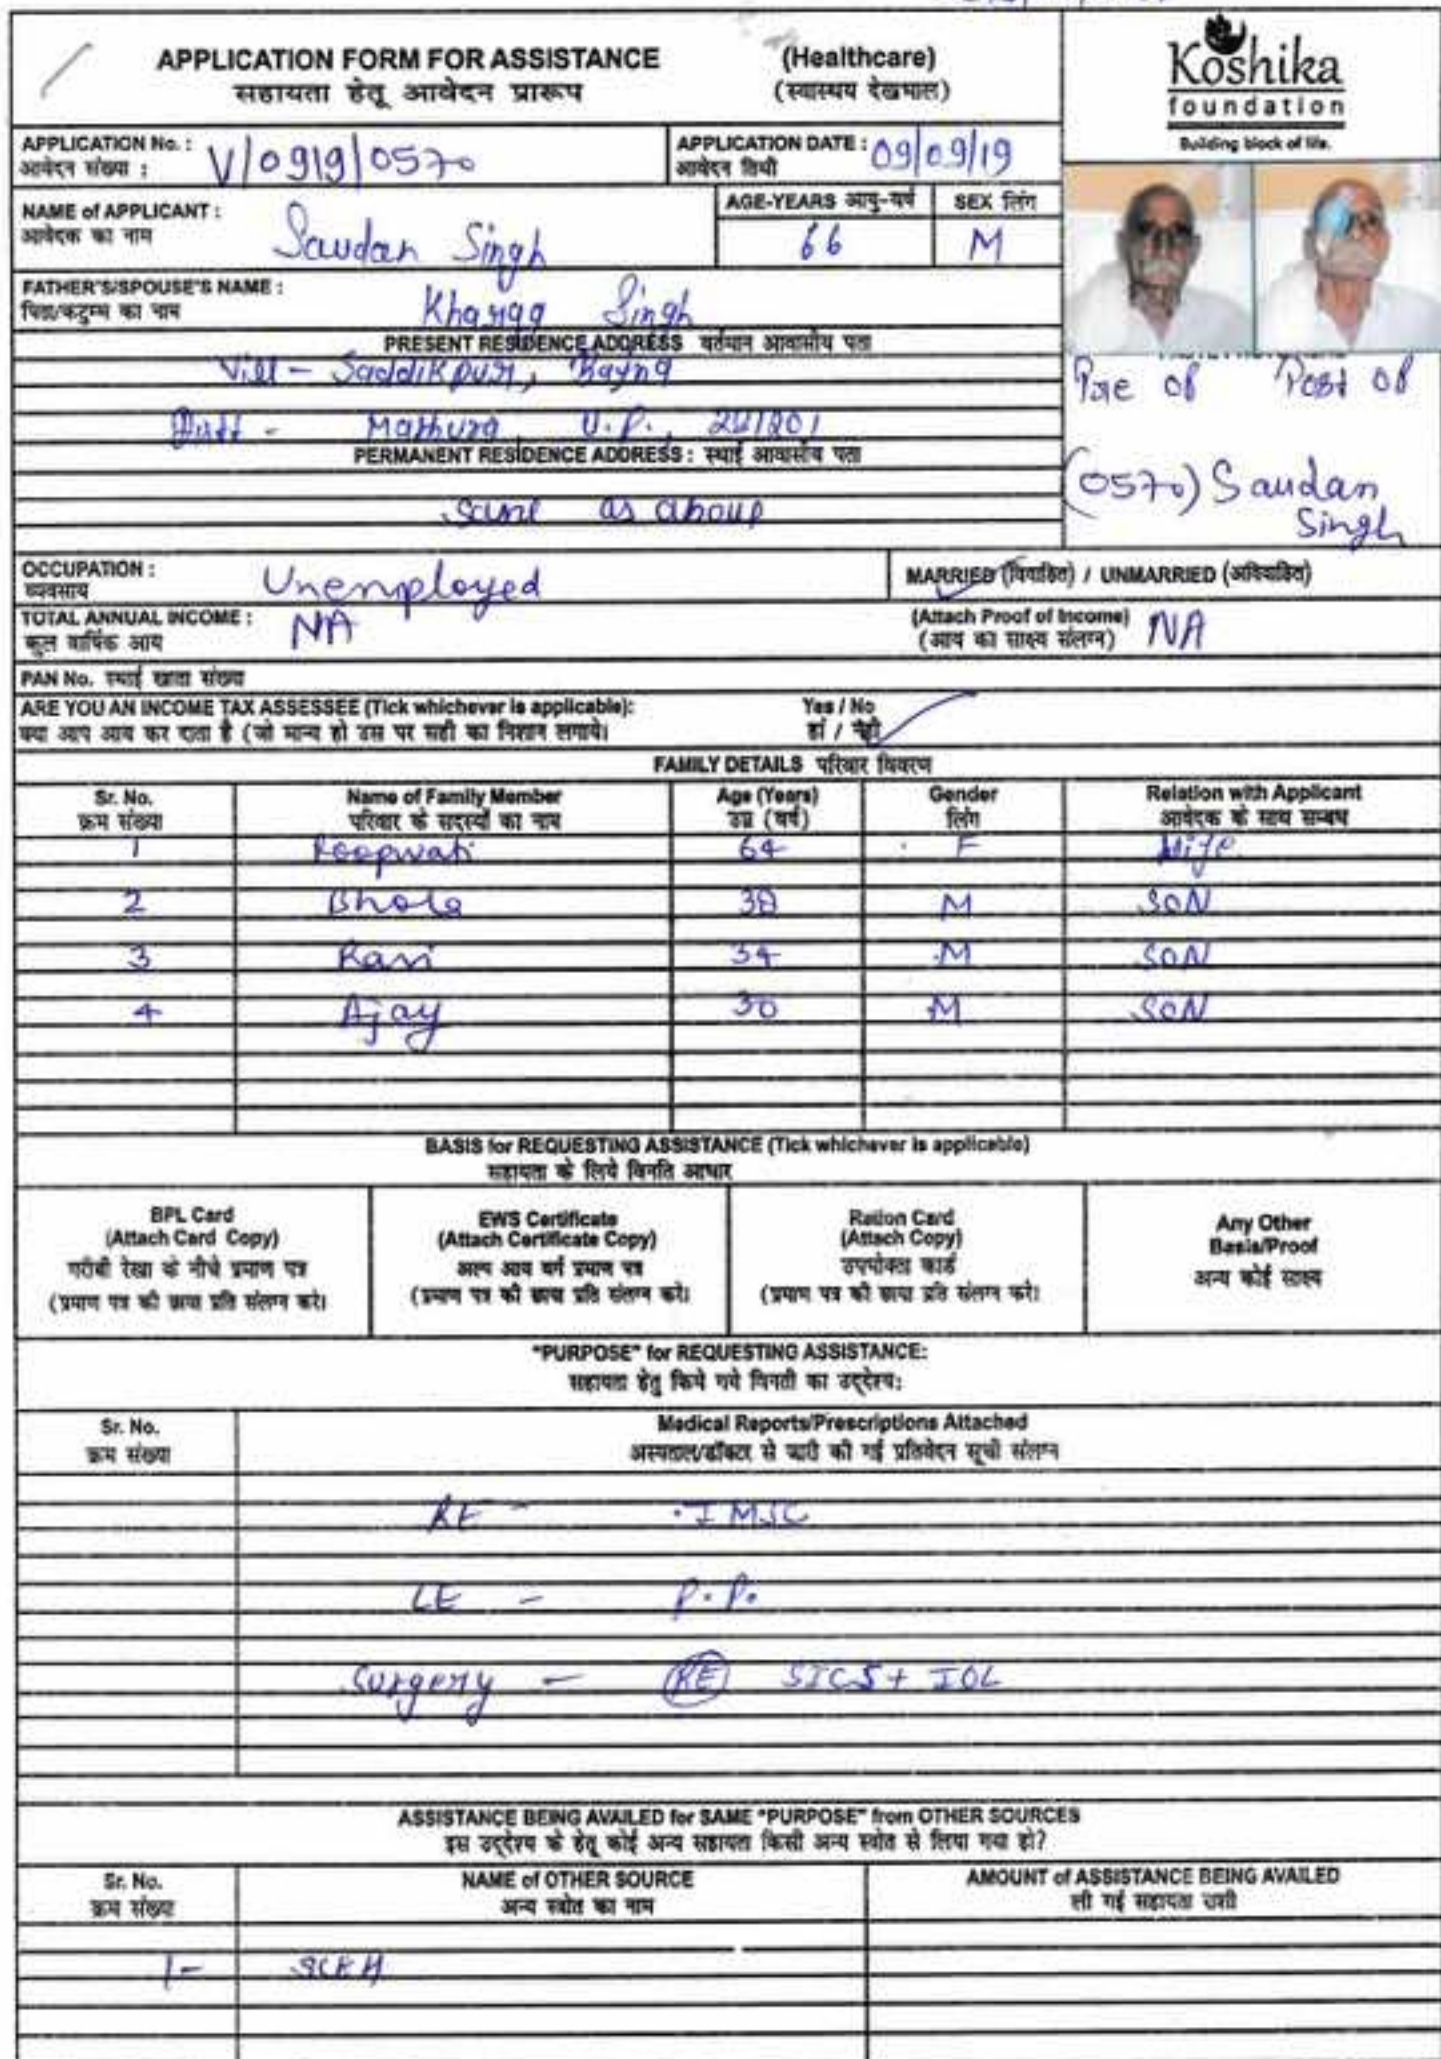 APPLICATION FORM FOR ASSISTANCE (Healthcare)
सहायता हेतू आवेदन प्रारूप (स्वास्थय देखभाल)
Koshika
foundation
Building block of life.
APPLICATION No. : V/0919/0570
आवेदन संख्या :
APPLICATION DATE : 09/09/19
आवेदन तिथी
NAME of APPLICANT : Saudan Singh
आवेदक का नाम
AGE-YEARS आयु-वर्ष 66
SEX लिंग M
FATHER'S/SPOUSE'S NAME : Kharga Singh
पिता/कटुम्ब का नाम
PRESENT RESIDENCE ADDRESS वर्तमान आवासीय पता
Vill - Saddikpur, Bayna
Distt - Mathura U.P.,
PERMANENT RESIDENCE ADDRESS : स्थाई आवासीय पता
same as above
Pre op Post op
(0570) Saudan
Singh
OCCUPATION : Unemployed
व्यवसाय
MARRIED (विवाहित) / UNMARRIED (अविवाहित)
TOTAL ANNUAL INCOME : NA
कुल वार्षिक आय
(Attach Proof of Income) NA
(आय का साक्ष्य संलग्न)
PAN No. स्थाई खाता संख्या
ARE YOU AN INCOME TAX ASSESSEE (Tick whichever is applicable): Yes / No
क्या आप आय कर दाता है (जो मान्य हो उस पर सही का निशान लगाये। हां / नही
FAMILY DETAILS परिवार विवरण
Sr. No. Name of Family Member Age (Years) Gender Relation with Applicant
क्रम संख्या परिवार के सदस्यों का नाम उम्र (वर्ष) लिंग आवेदक के साथ सम्बध
1 Roopwati 64 F Wife
2 Bhola 38 M SON
3 Ravi 34 M SON
4 Ajay 30 M SON
BASIS for REQUESTING ASSISTANCE (Tick whichever is applicable)
सहायता के लिये विनति आधार
BPL Card
(Attach Card Copy)
गरीबी रेखा के नीचे प्रमाण पत्र
(प्रमाण पत्र की छाया प्रति संलग्न करे।
EWS Certificate
(Attach Certificate Copy)
अल्प आय वर्ग प्रमाण पत्र
(प्रमाण पत्र की छाया प्रति संलग्न करे।
Ration Card
(Attach Copy)
उपभोक्ता कार्ड
(प्रमाण पत्र की छाया प्रति संलग्न करे।
Any Other
Basis/Proof
अन्य कोई साक्ष्य
"PURPOSE" for REQUESTING ASSISTANCE:
सहायता हेतु किये गये विनती का उद्देश्य:
Sr. No. Medical Reports/Prescriptions Attached
क्रम संख्या अस्पताल/डॉक्टर से जारी की गई प्रतिवेदन सूची संलग्न
RE - IMSC
LE - P.P.
Surgery - RE SICS + IOL
ASSISTANCE BEING AVAILED for SAME "PURPOSE" from OTHER SOURCES
इस उद्देश्य के हेतू कोई अन्य सहायता किसी अन्य स्त्रोत से लिया गया हो?
Sr. No. NAME of OTHER SOURCE AMOUNT of ASSISTANCE BEING AVAILED
क्रम संख्या अन्य स्त्रोत का नाम ली गई सहायता राशी
1- SCEH